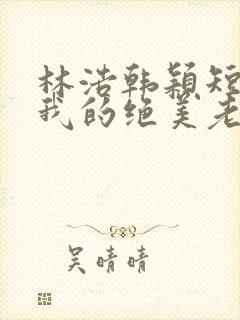 林浩韩颖短
我的绝美老
吴晴晴